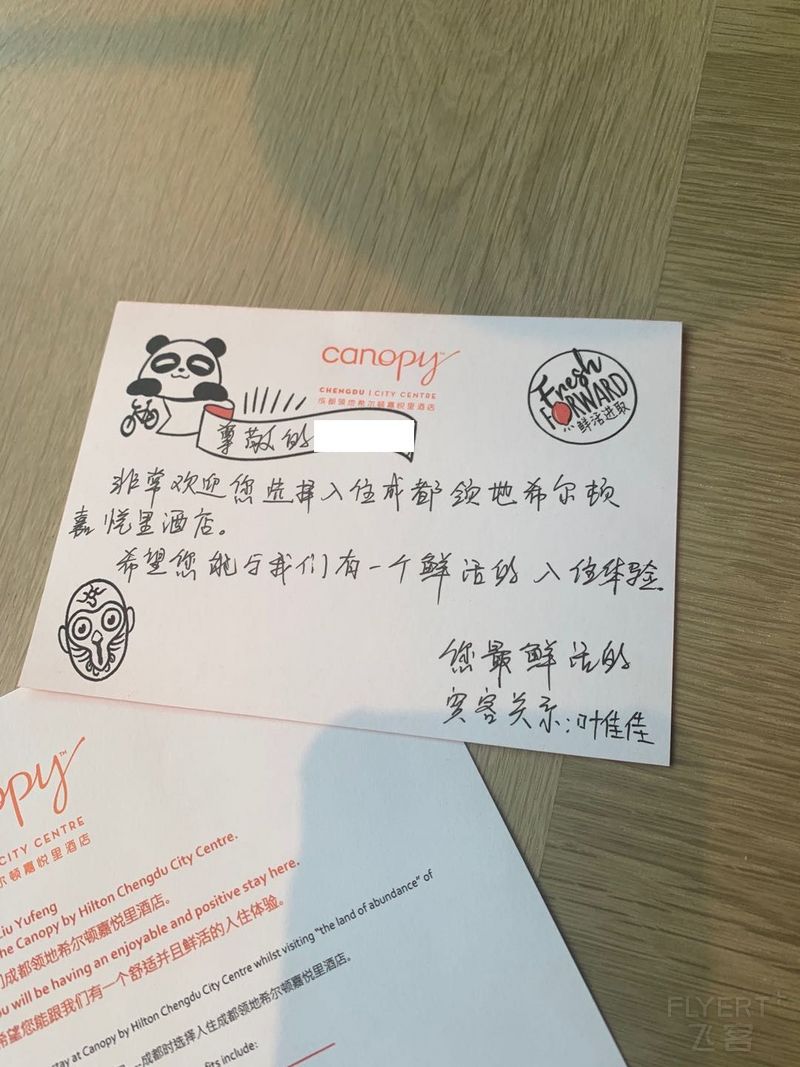 canopy™
CHENGDU | CITY CENTRE
成都领地希尔顿嘉悦里酒店
Fresh
FORWARD
鲜活进取
尊敬的
非常欢迎您选择入住成都领地希尔顿
嘉悦里酒店。
希望您能与我们有一个鲜活的入住体验
您最鲜活的
宾客关系:叶佳佳
opy™
CITY CENTRE
尔顿嘉悦里酒店
Liu Yufeng
he Canopy by Hilton Chengdu City Centre.
们成都领地希尔顿嘉悦里酒店。
ou will be having an enjoyable and positive stay here.
希望您能跟我们有一个舒适并且鲜活的入住体验。
tay at Canopy by Hilton Chengdu City Centre whilst visiting “the land of abundance” of
—成都时选择入住成都领地希尔顿嘉悦里酒店。
fits include:
FLYERT
飞客